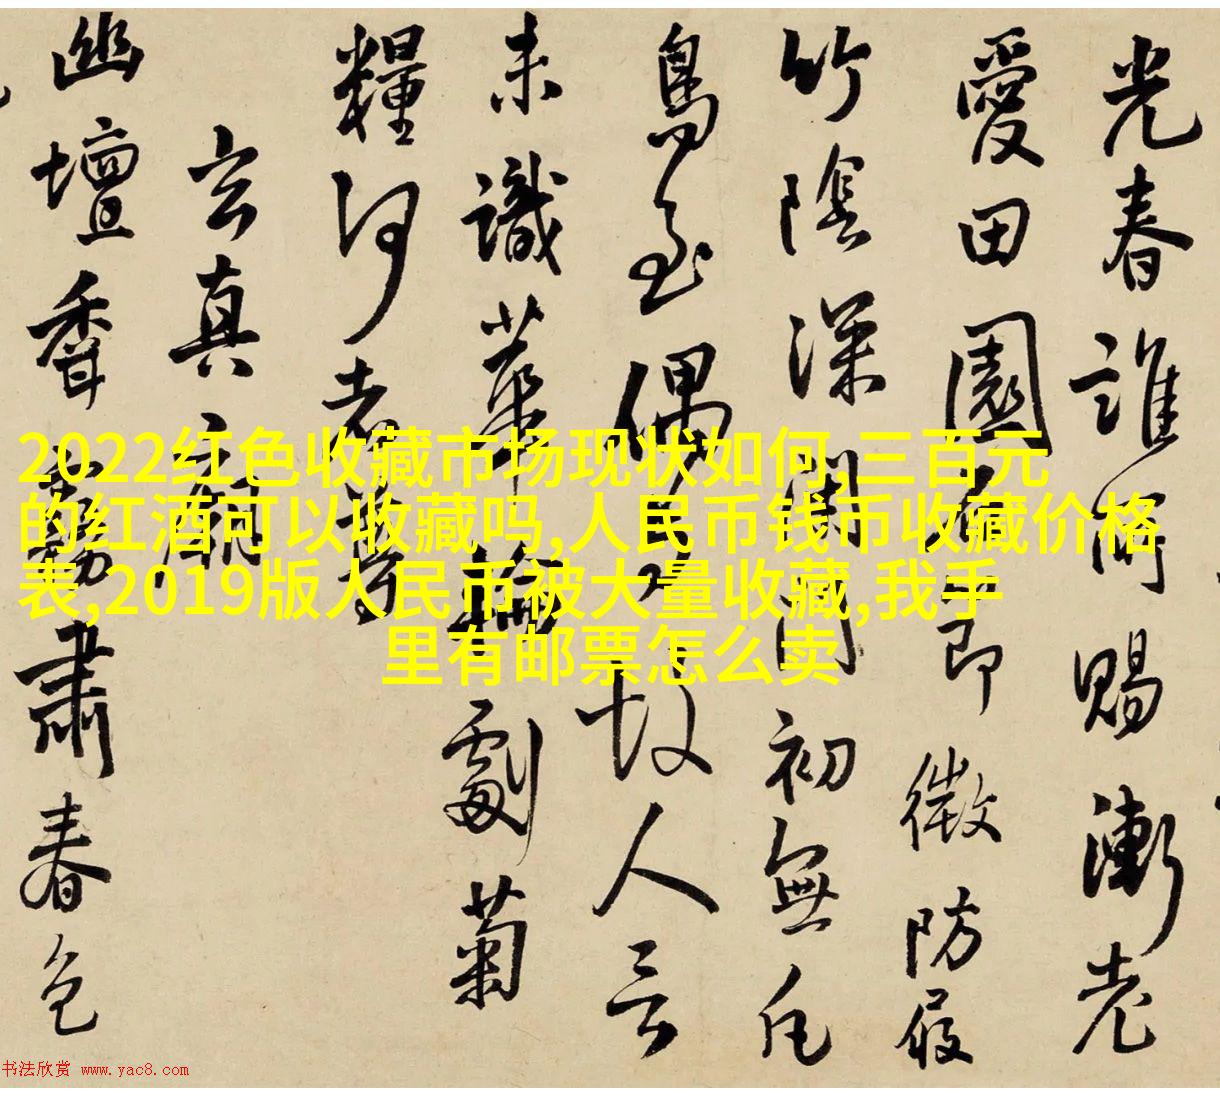 光春誰所賜漸老
愛田園即微防屐
竹陰深閉門初無凡
鳥至偶有故人言
未識華劇菊
糧何
玄真祠
幽壇肅春色
2022红色收藏市场现状如何,三百元
的红酒可以收藏吗,人民币钱币收藏价格
表,2019版人民币被大量收藏,我手
里有邮票怎么卖
书法欣赏 www.yac8.com